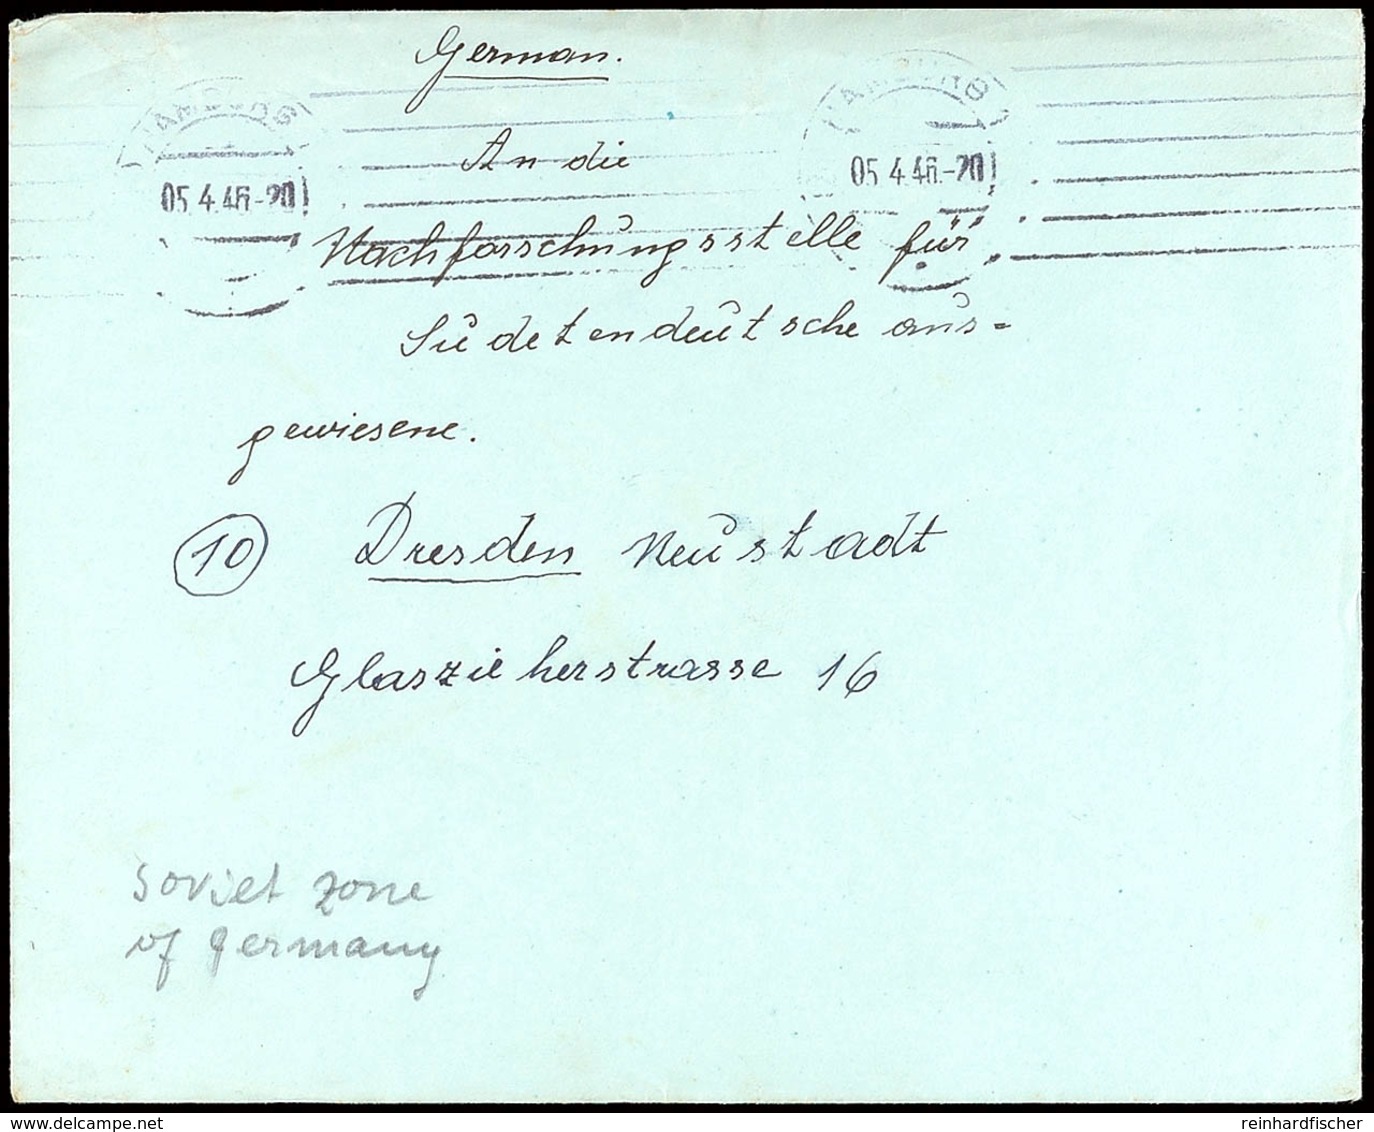 German.
HAMBURG
HAMBURG
An die
05.4.46-20
05.4.46-20
Nachforschungsstelle für
Sudetendeutsche aus=
gewiesene.
10 Dresden Neustadt
Glaszieherstrasse 16
soviet zone
of germany
delcampe.net
reinhardfischer